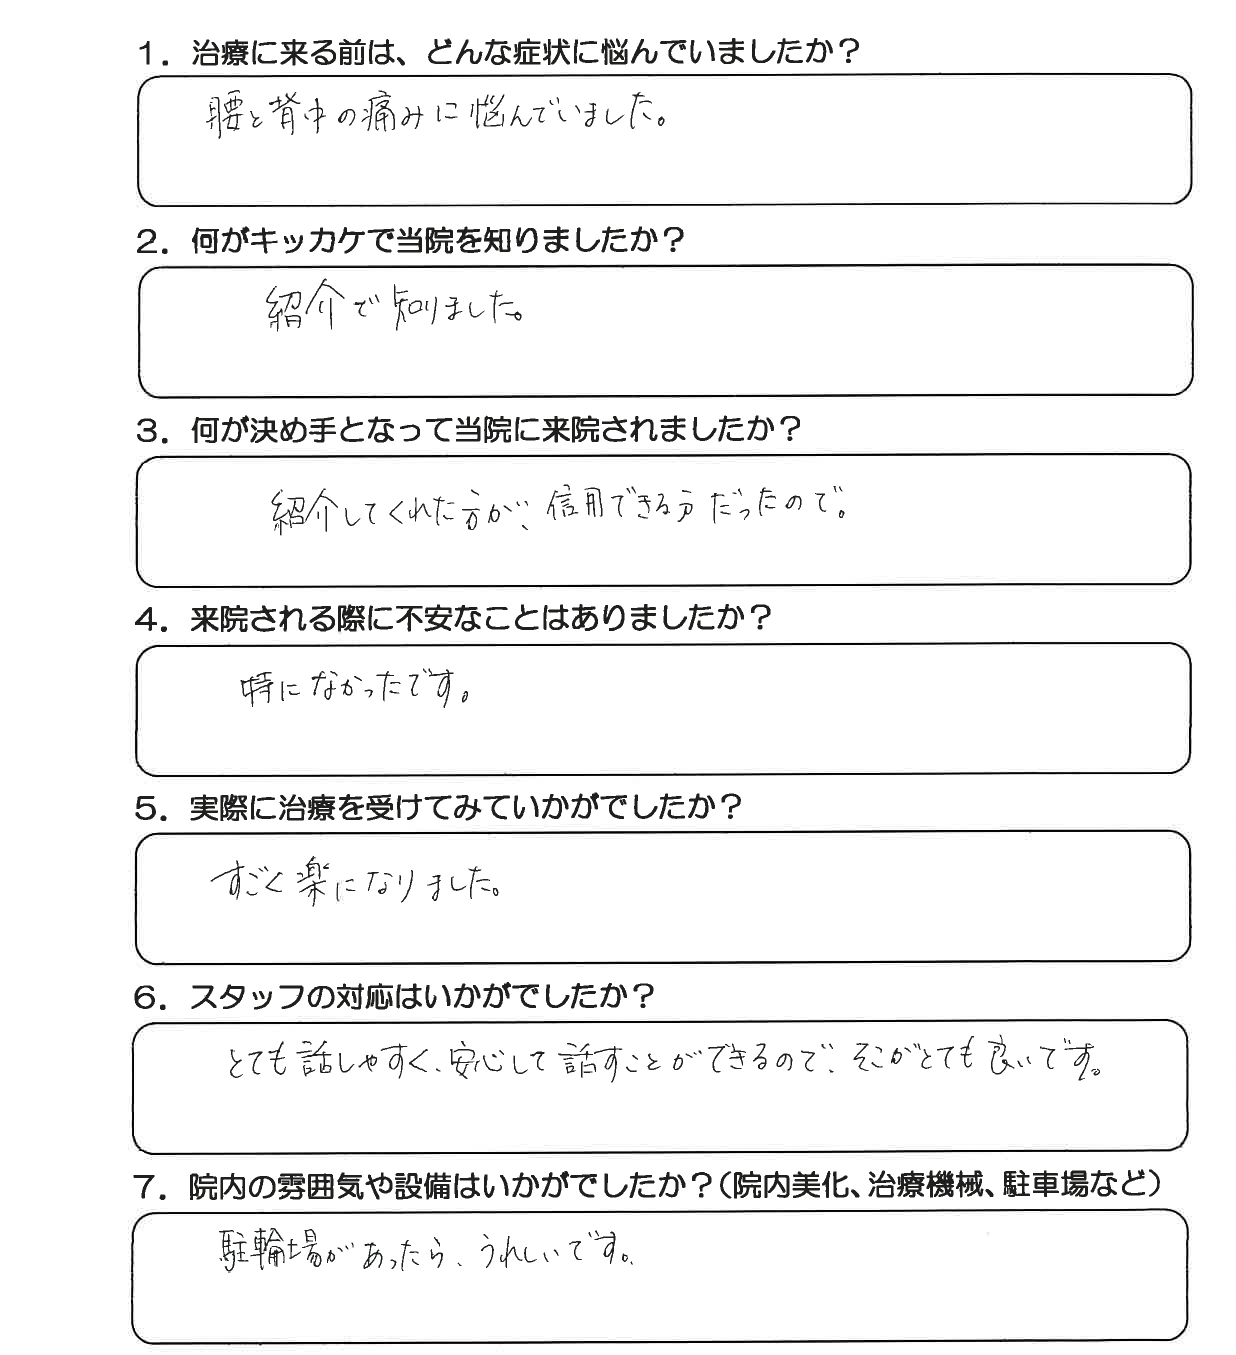 1．治療に来る前は、どんな症状に悩んでいましたか？
腰と背中の痛みに悩んでいました。
2．何がキッカケで当院を知りましたか？
紹介で知りました。
3．何が決め手となって当院に来院されましたか？
紹介してくれた方が、信用できる方だったので。
4．来院される際に不安なことはありましたか？
特になかったです。
5．実際に治療を受けてみていかがでしたか？
すごく楽になりました。
6．スタッフの対応はいかがでしたか？
とても話しやすく、安心して話すことができるので、そこがとても良いです。
7．院内の雰囲気や設備はいかがでしたか？（院内美化、治療機械、駐車場など）
駐輪場があったら、うれしいです。